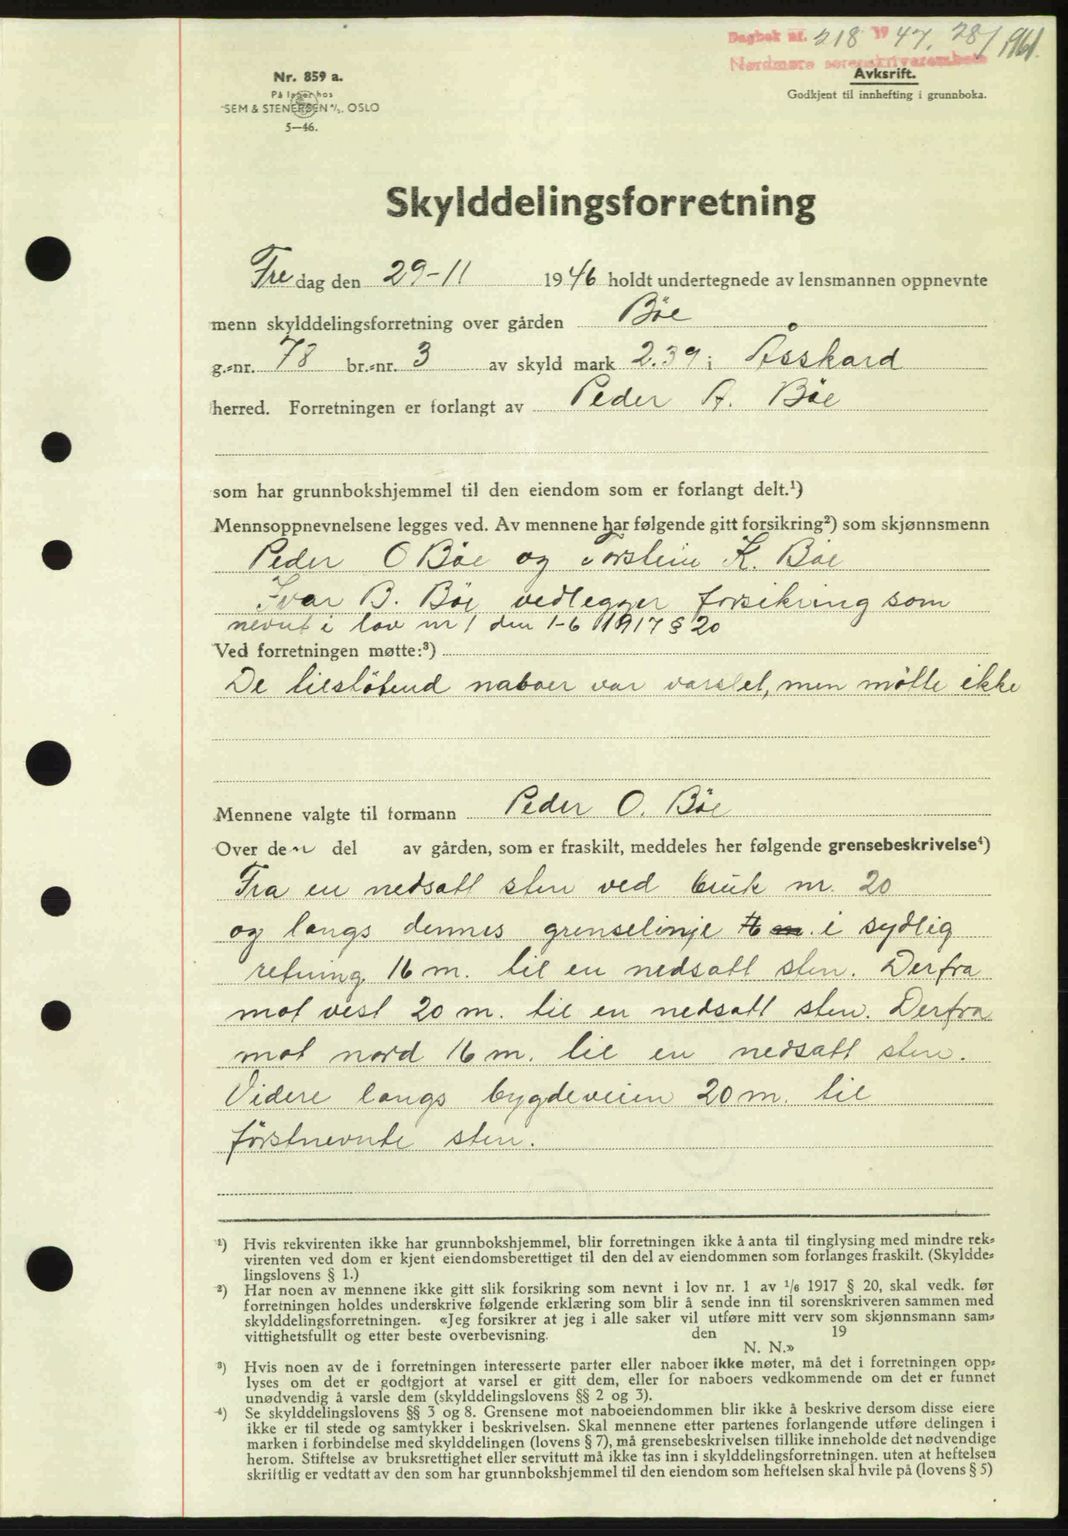 Dagbok nr. 218 1947, 28/1 1961.
Nordmøre sorenskriverembete
Nr. 859 a.
På lager hos
SEM & STENERSEN A/S. OSLO
5—46.
Avkskrift.
Godkjent til innhefting i grunnboka.
Skylddelingsforretning
Fredag den 29-11 1946 holdt undertegnede av lensmannen oppnevnte
menn skylddelingsforretning over gården Böe
g.-nr. 78 br.-nr. 3 av skyld mark 2.39 i Åsskard
herred. Forretningen er forlangt av Peder A. Böe
som har grunnbokshjemmel til den eiendom som er forlangt delt.¹)
Mennsoppnevnelsene legges ved. Av mennene har følgende gitt forsikring²) som skjønnsmenn
Peder O Böe og Torstein K. Böe
Ivar B. Böe vedlegger forsikring som
nevnt i lov nr 1 den 1-6 1917 § 20
Ved forretningen møtte:³)
De tilstötend naboer var varslet, men mötte ikke
Mennene valgte til formann Peder O. Böe
Over den del av gården, som er fraskilt, meddeles her følgende grensebeskrivelse⁴)
Fra en nedsatt sten ved bruk nr. 20
og langs dennes grenselinje i sydlig
retning 16 m. til en nedsatt sten. Derfra
mot vest 20 m. til en nedsatt sten. Derfra
mot nord 16 m. til en nedsatt sten.
Videre langs bygdeveien 20 m. til
förstnevnte sten.
¹) Hvis rekvirenten ikke har grunnbokshjemmel, blir forretningen ikke å anta til tinglysing med mindre rek-
virenten ved dom er kjent eiendomsberettiget til den del av eiendommen som forlanges fraskilt. (Skyldde-
lingslovens § 1.)
²) Har noen av mennene ikke gitt slik forsikring som nevnt i lov nr. 1 av 1/6 1917 § 20, skal vedk. før
forretningen holdes underskrive følgende erklæring som blir å sende inn til sorenskriveren sammen med
skylddelingsforretningen. «Jeg forsikrer at jeg i alle saker vil utføre mitt verv som skjønnsmann sam-
vittighetsfullt og etter beste overbevisning. den 19
N. N.»
³) Hvis noen av de i forretningen interesserte parter eller naboer ikke møter, må det i forretningen opp-
lyses om det er godtgjort at varsel er gitt dem, eller for naboers vedkommende om det er funnet
unødvendig å varsle dem (skylddelingslovens §§ 2 og 3).
⁴) Se skylddelingslovens §§ 3 og 8. Grensene mot naboeiendommen blir ikke å beskrive dersom disse eiere
ikke er til stede og samtykker i beskrivelsen. Skal mennene etter partenes forlangende utføre delingen i
marken i forbindelse med skylddelingen (lovens § 7), må grensebeskrivelsen tillike inneholde det nødvendige
herom. Stiftelse av bruksrettighet eller servitutt må ikke tas inn i skylddelingsforretningen. uten at heftelsen
skriftlig er vedtatt av den som har grunnbokshjemmel til den eiendom som heftelsen skal hvile på (lovens § 5)